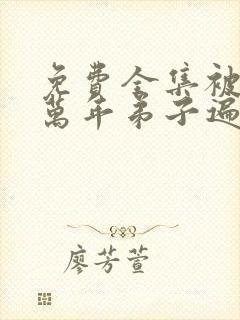 免費全集被
萬年弟子遍
廖芳萱